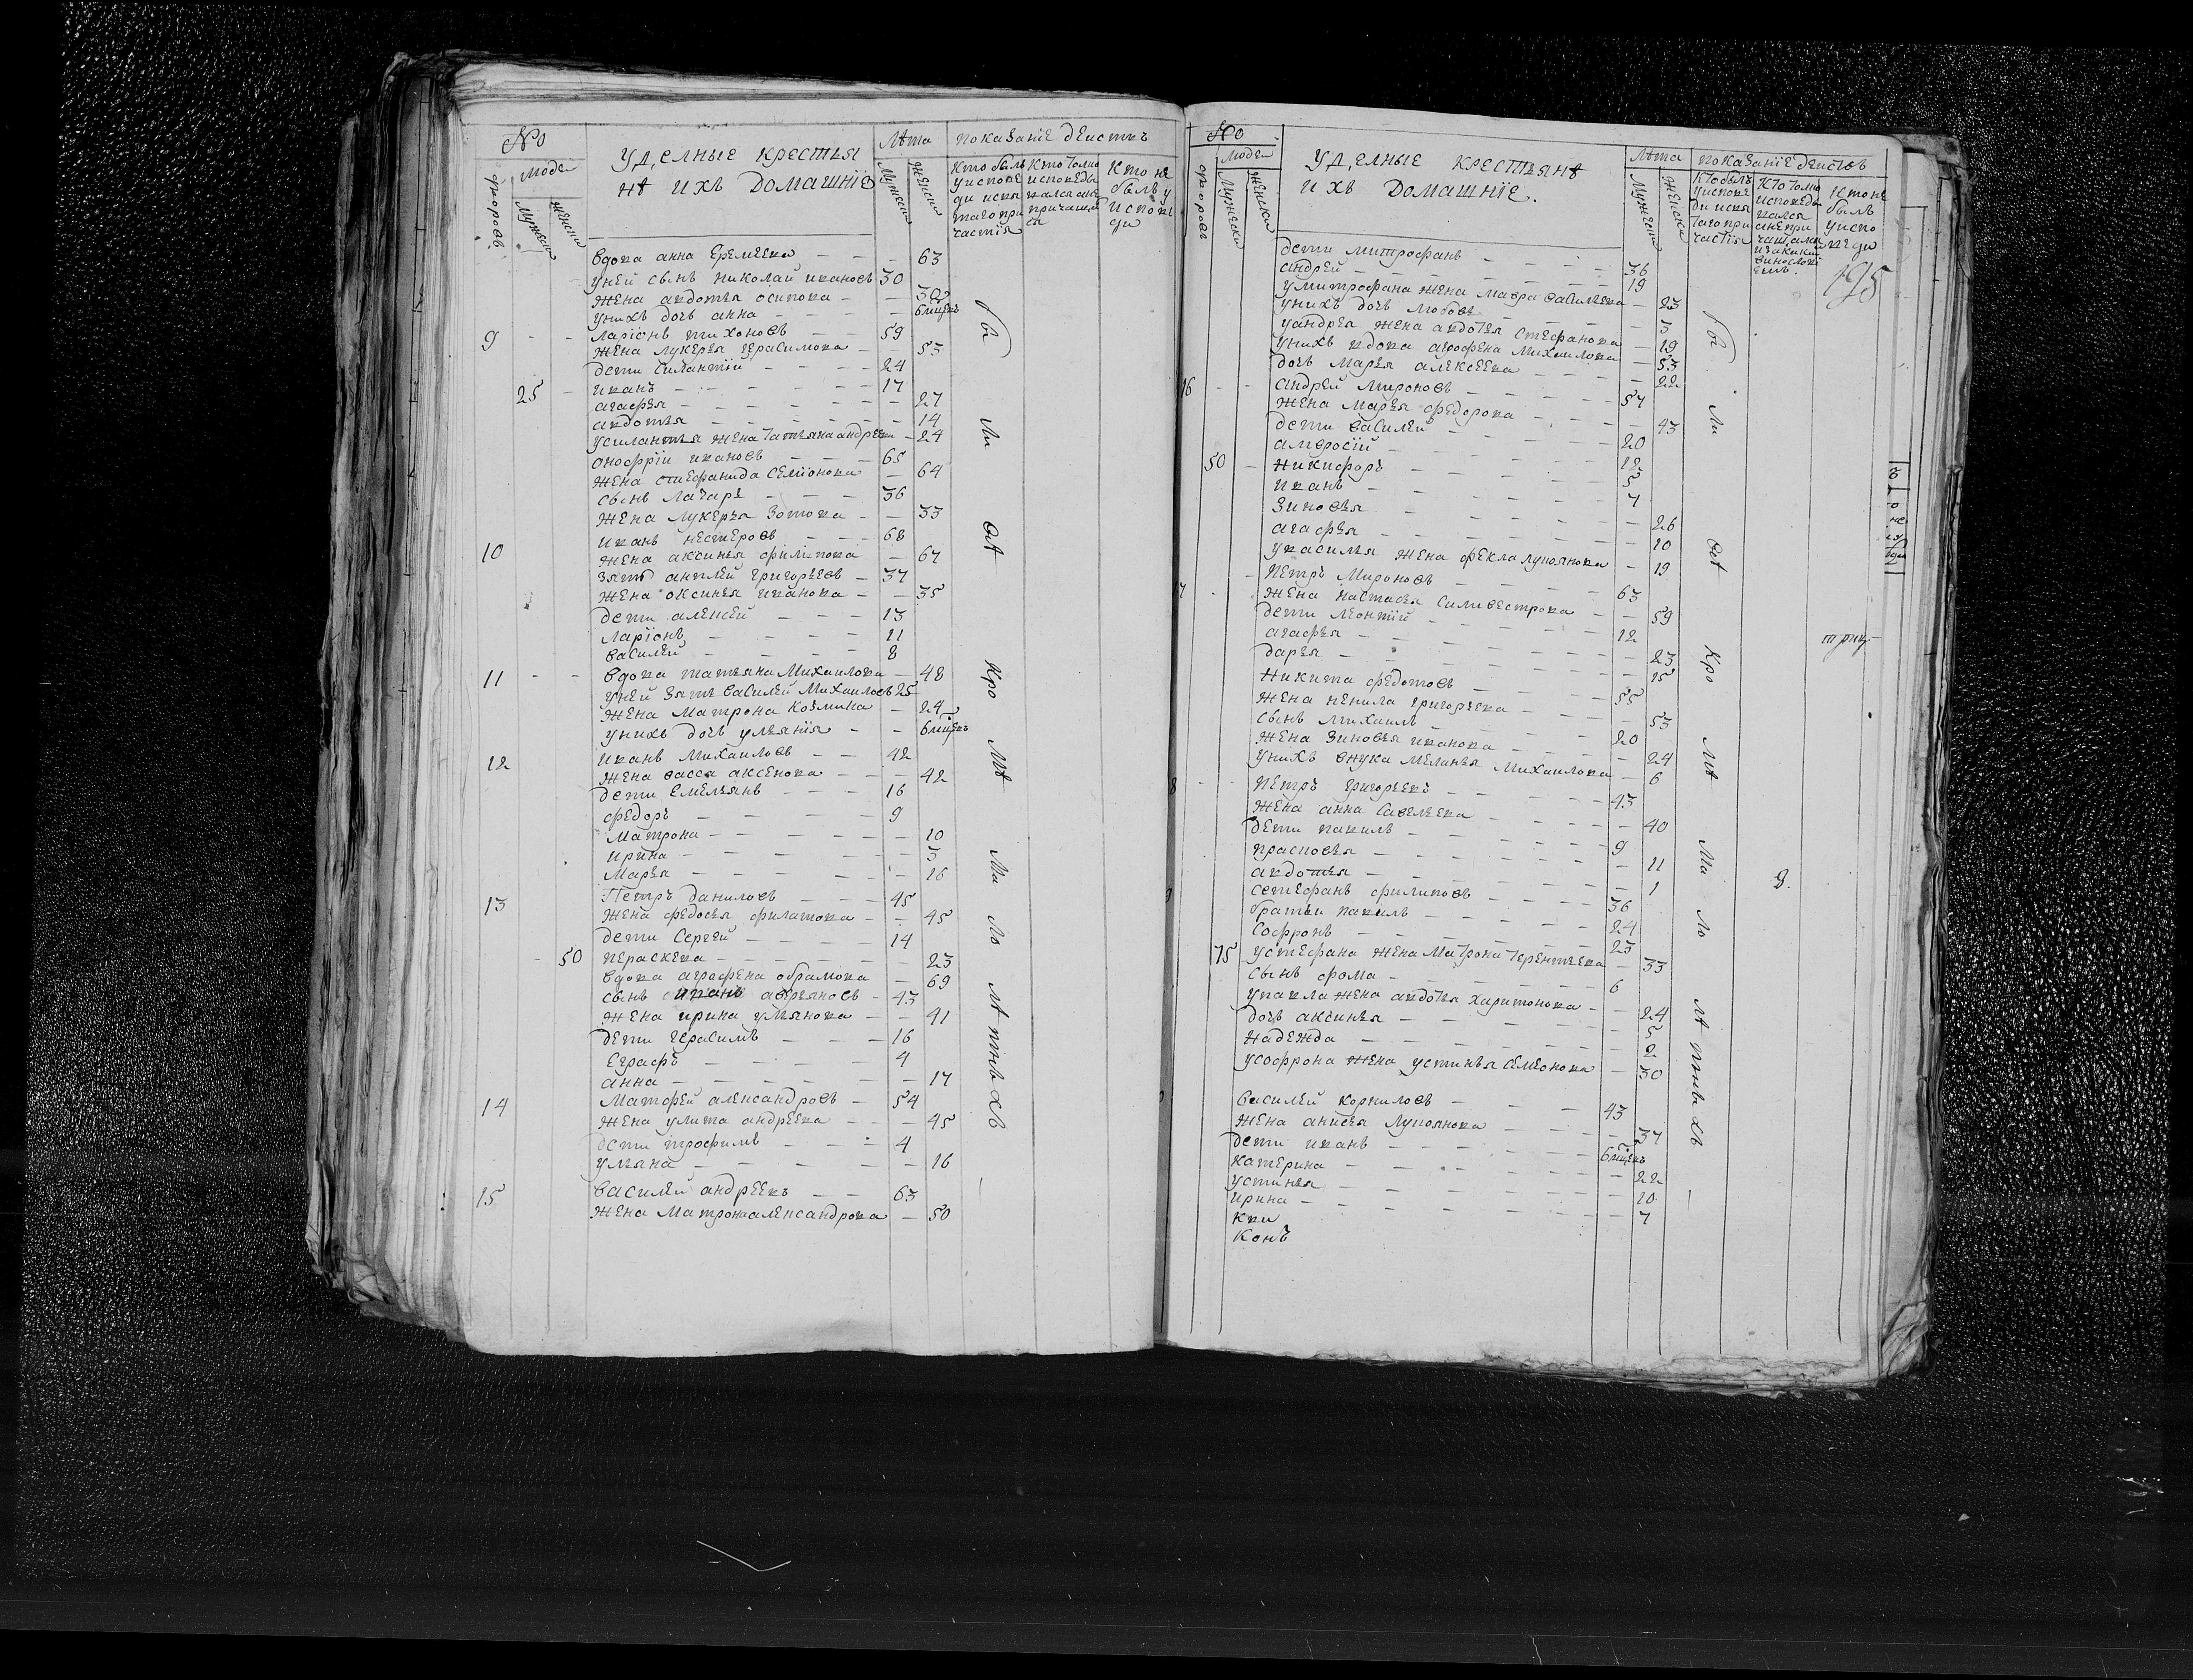 №
дворовъ
людей
мужеска
женска
Удѣлные крестья
нѣ ихъ домашніе
Лѣта
мужеска
женска
показаніе действъ
Кто былъ у исповеди и свя таго при частія
Кто толко исповеды вался а не причащал ся
Кто не былъ у испове ди
вдова анна Еремеева 63
у ней сынъ николай ивановъ 30
жена авдотья осипова
у нихъ дочь анна
9 ларіонъ тихоновъ 59
жена лукерья герасимова 53
дети силантій 24
25 иванъ 17
агафья 27
авдотья 14
у силантья жена татьяна андреева 24
онофріи ивановъ 65
жена стефанида семіонова 64
сынъ лазарь 36
жена лукерья зотова 33
10 иванъ нестеровъ 68
жена аксинья филипова 67
зять антпей григорьевъ 37
жена оксинья иванова 35
дети алексей 13
ларіонъ 11
василей 8
11 вдова татьяна михаилова 48
у ней зять василей михаиловъ 25
жена матрона козмина 24
у нихъ дочь ульянія 6 мицевъ
12 иванъ михаиловъ 42
жена васса аксенова 42
дети емельянъ 16
федоръ 9
матрона 10
ирина 5
марья 16
13 Петръ даниловъ 45
жена федосья филатова 45
дети сергей 14
50 пераскева 23
вдова агрофена обрамова 69
сынъ иванъ аверьяновъ 43
жена ирина ульянова 41
дети герасимъ 16
еграфъ 4
анна 17
14 матфей александровъ 54
жена улита андреева 45
дети трофимъ 4
ульяна 16
15 василей андреевъ 63
жена матрона александрова 50
бы
ли
всѣ
кро
мѣ
ма
ло
лѣтныхъ
№
дворовъ
людей
мужеска
женска
Удѣлные крестьянѣ
и ихъ домашніе.
Лѣта
мужеска
женска
показаніе действъ
Кто былъ у испове ди и свя таго при частія
Кто толко исповеды вался а не при чащался
Кто не былъ у испо веди
195
дети митрофанъ 36
андрей 19
у митрофана жена мавра савельева 23
у нихъ дочь любовь
у андрея жена авдотья стефанова 19
у нихъ вдова агрофена михаилова 53
дочь марья алексеева 22
16 андрей мироновъ 57
жена марья федорова 43
дети василей 20
амвросій 12
50 никифоръ 5
иванъ 7
зиновья 26
агафья 10
у василья жена фекла лупоянова 19
7 петръ мироновъ 63
жена настасья силивестрова 59
дети леонтій 12
агафья 23
дарья 15
никита федотовъ 55
жена ненила григорьева 53
сынъ михаилъ 20
жена зиновья иванова 24
у нихъ внука меланья михаилова 6
8 петръ григорьевъ 43
жена анна савельева 40
дети павилъ 9
прасковья 11
авдотья 1
9 стефанъ филиповъ 36
братьи павилъ 24
софронъ 23
75 у стефана жена матрона терентьева 33
сынъ фома 6
у павла жена авдотья харитонова 24
дочь аксинья 5
надежда 2
у софрона жена устинья семіонова 30
василей корниловъ 43
жена анисья лупоянова 37
дети иванъ
катерина 22
устинья 10
ирина 7
бы
ли
всѣ
кро
мѣ
ма
ло
лѣтныхъ